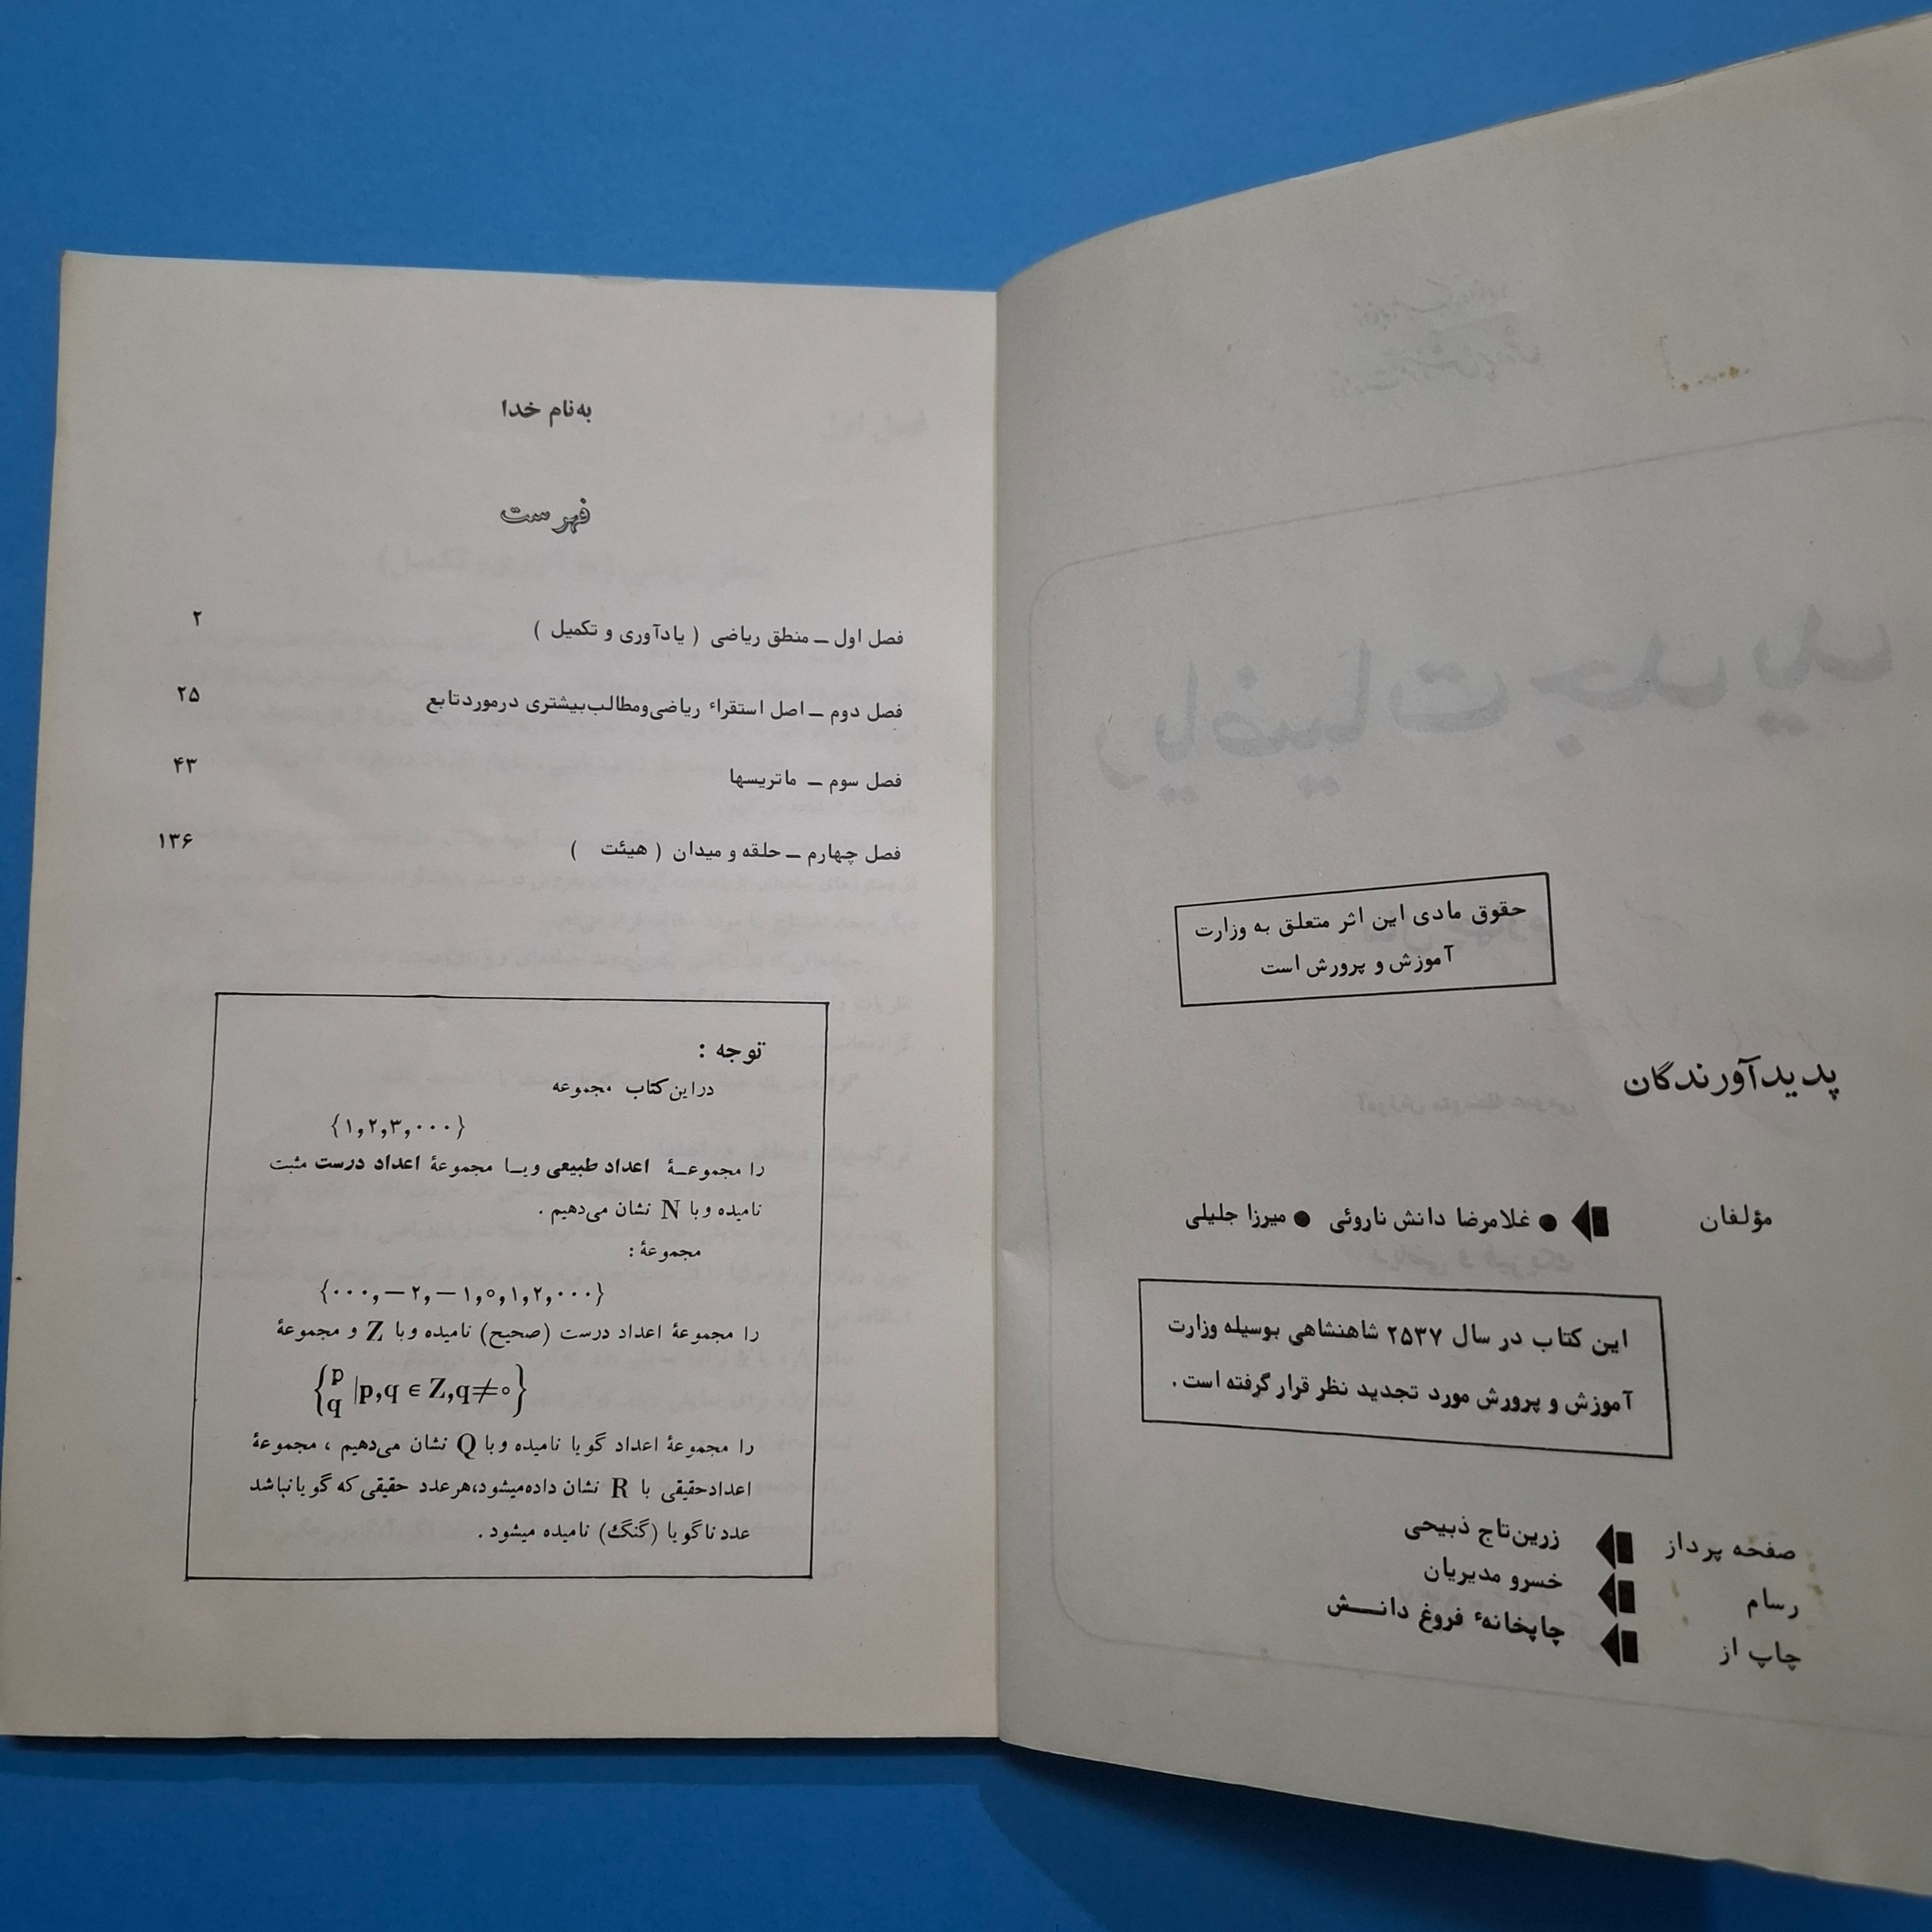 حقوق مادی این اثر متعلق به وزارت
آموزش و پرورش است
پدیدآورندگان
مؤلفان ● غلامرضا دانش ناروئی ● میرزا جلیلی
این کتاب در سال ۲۵۳۷ شاهنشاهی بوسیله وزارت
آموزش و پرورش مورد تجدید نظر قرار گرفته است .
صفحه پرداز زرین‌تاج ذبیحی
رسام خسرو مدیریان
چاپ از چاپخانهٔ فروغ دانش
به‌نام خدا
فهرست
فصل اول ــ منطق ریاضی ( یادآوری و تکمیل ) ۲
فصل دوم ــ اصل استقراء ریاضی‌و‌مطالب‌بیشتری درموردتابع ۲۵
فصل سوم ــ ماتریسها ۴۳
فصل چهارم ــ حلقه و میدان ( هیئت ) ۱۳۶
توجه :
دراین‌کتاب مجموعه
{۱,۲,۳,۰۰۰}
را مجموعهٔ اعداد طبیعی ویا مجموعهٔ اعداد درست مثبت
نامیده وبا N نشان می‌دهیم .
مجموعهٔ :
{۰۰۰,−۲,−۱,۰,۱,۲,۰۰۰}
را مجموعهٔ اعداد درست (صحیح) نامیده وبا Z و مجموعهٔ
{p/q |p,q ∈ Z,q≠۰}
را مجموعهٔ اعداد گویا نامیده وبا Q نشان می‌دهیم ، مجموعهٔ
اعدادحقیقی با R نشان داده‌میشود،هرعدد حقیقی‌که گویانباشد
عدد ناگویا (گنگ) نامیده میشود .